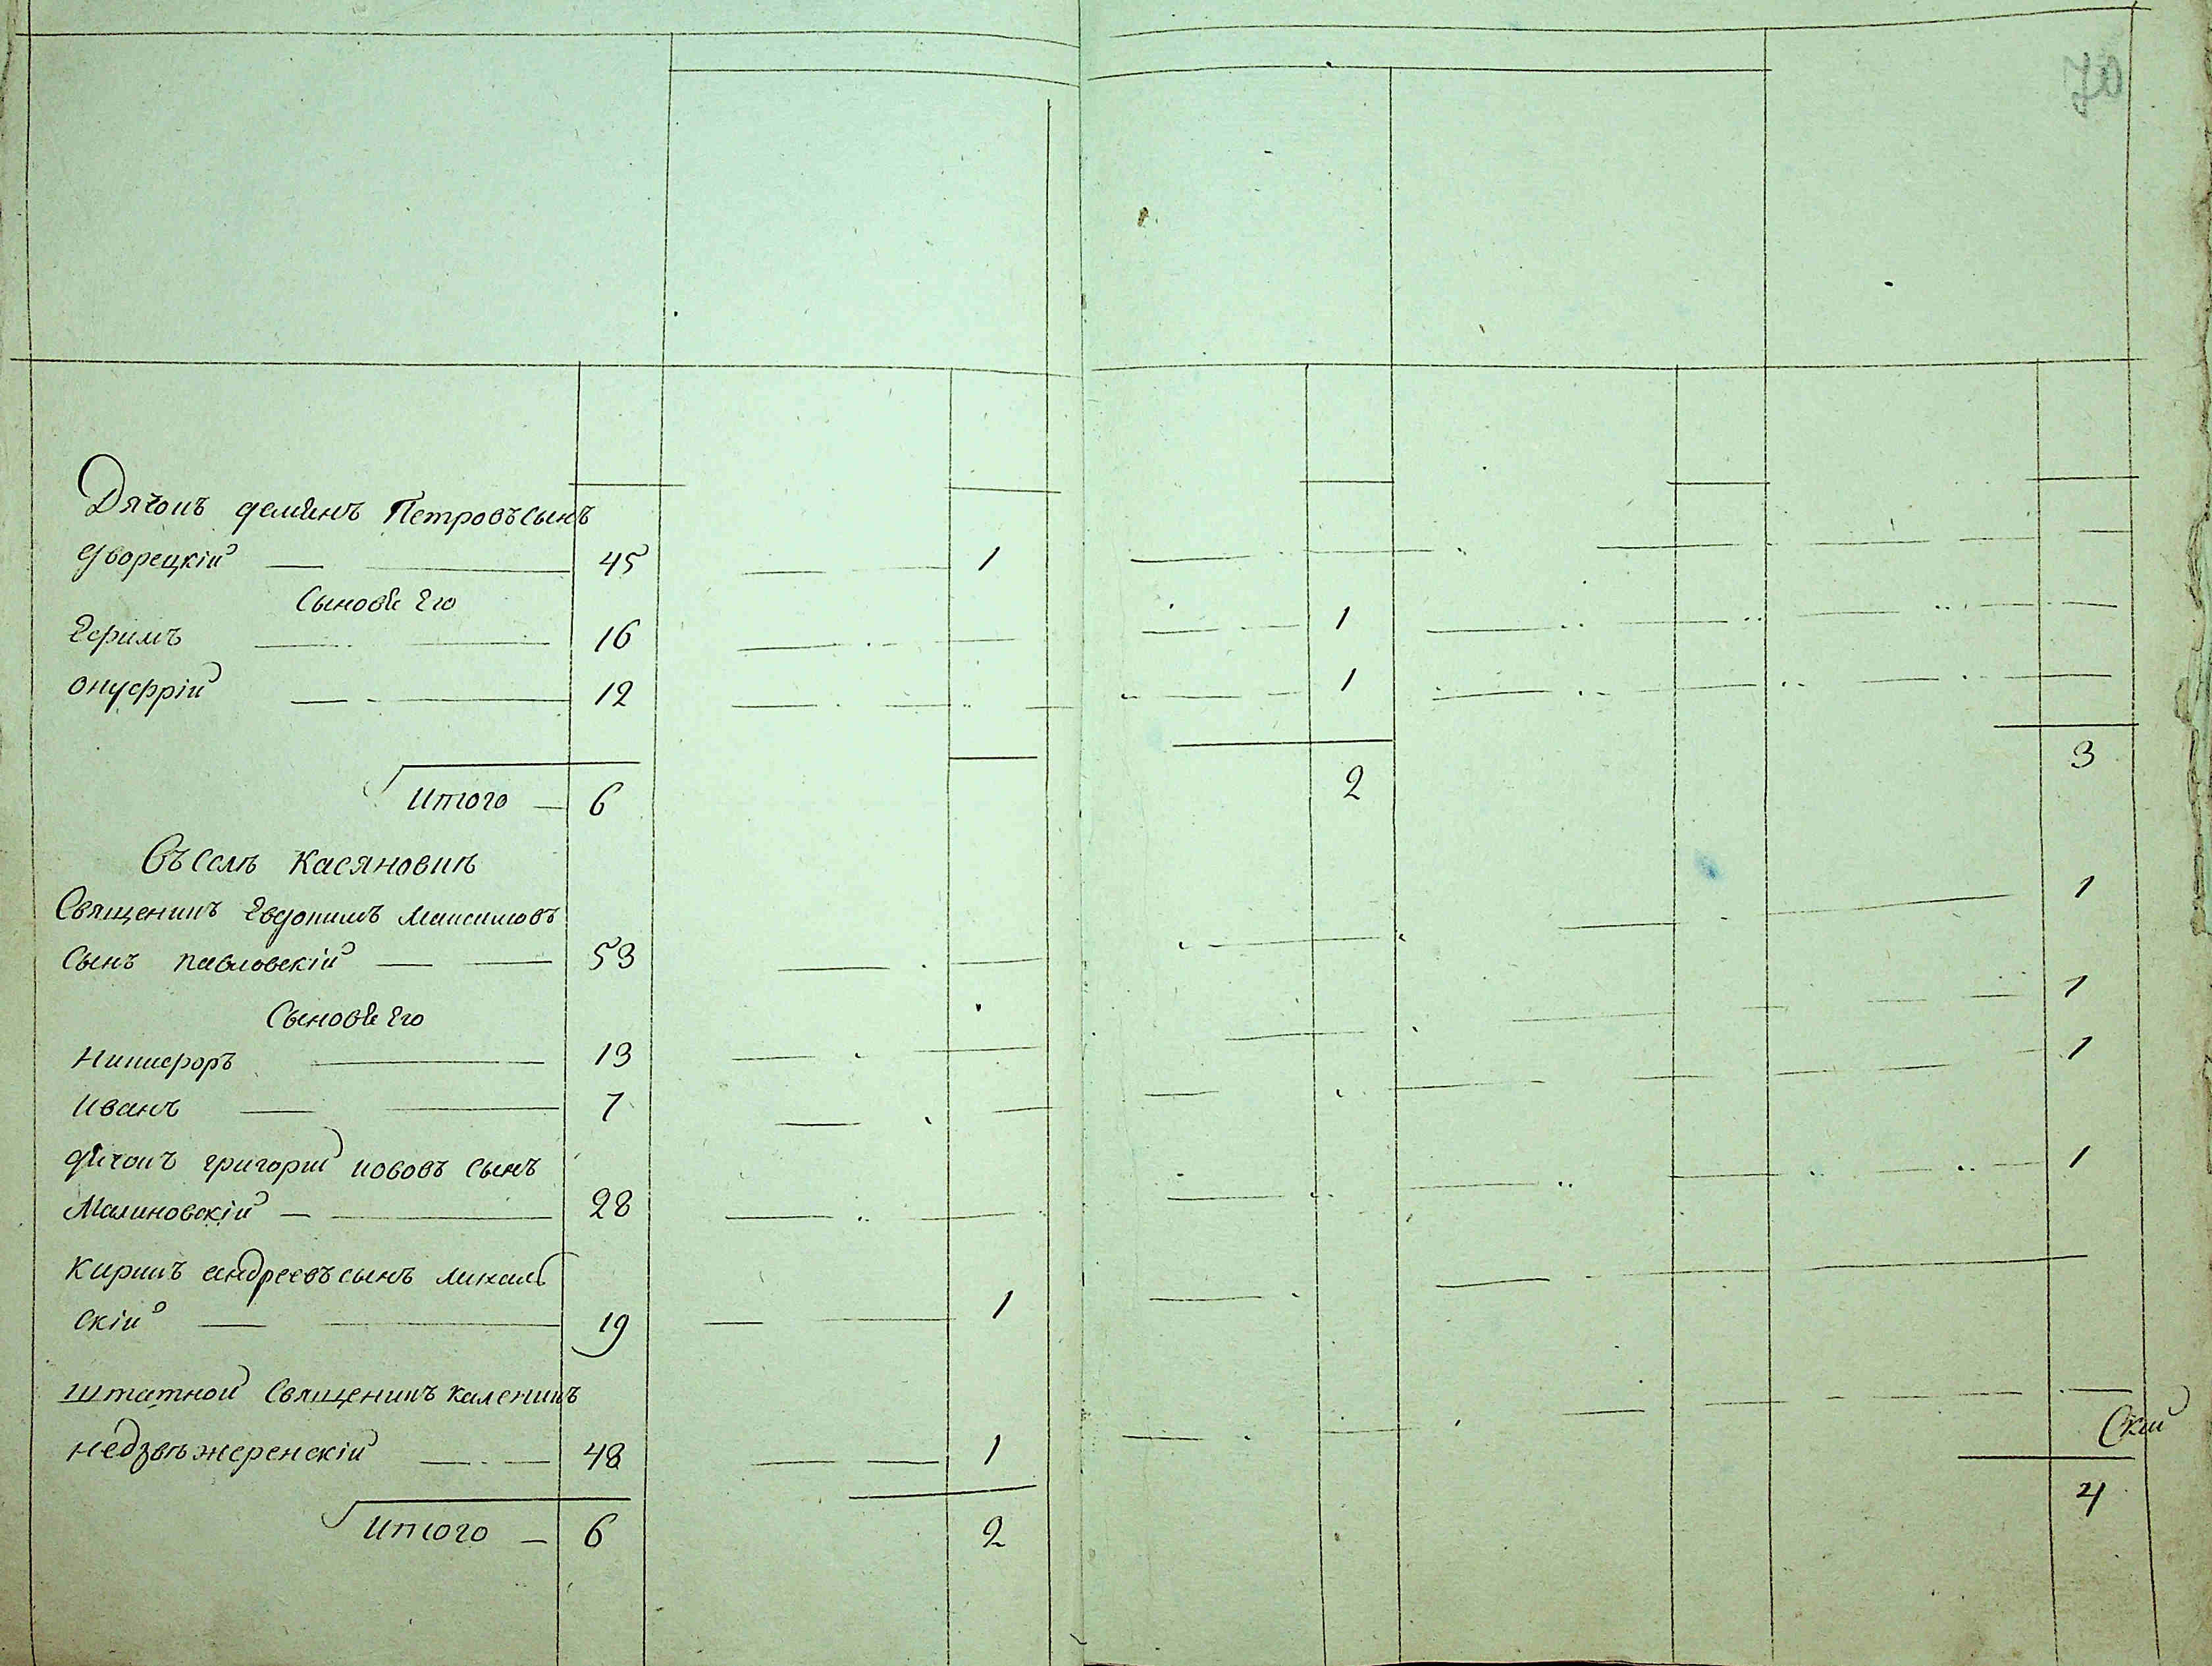 70
Дячокъ демянъ Петровъ сынъ
дворецкій — 45 — 1
Сыновя Его
Ефимъ — 16 — 1
онуфрій — 12 — 1
Итого — 6 2 3
Въ селѣ Касяновкѣ
Священикъ Евдокимъ Максимовъ 1
Сынъ павловскій — 53
Сыновя Его
Никифоръ — 13 — 1
Иванъ — 7 — 1
дячокъ григорий иововъ сынъ 1
Малиновскій — 28
Кирикъ андреевъ сынъ
скій — 19 — 1
штатной Священикъ каленикъ
недзвѣжеренскій — 48 — 1
Итого — 6 2 4
Скій